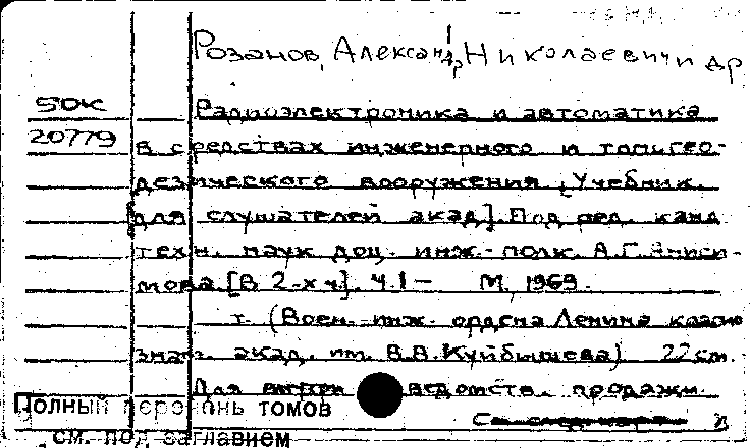 Розанов, Александр Николаевич и др
50к
Радиоэлектроника и автоматика
20779
в средствах инженерного и топогео-
дезического вооружения. [Учебник
для слушателей акад]. Под ред. канд
техн. наук доц. инж.-полк. А.Г. Аниси-
мова. [В 2-х ч]. Ч.1 – М., 1969.
т. (Воен.-инж. ордена Ленина красно
знам. акад. им. В.В. Куйбышева) 22 см.
Для ведомств. продажи
Полный перечень томов
См. след. карт
см. под заглавием